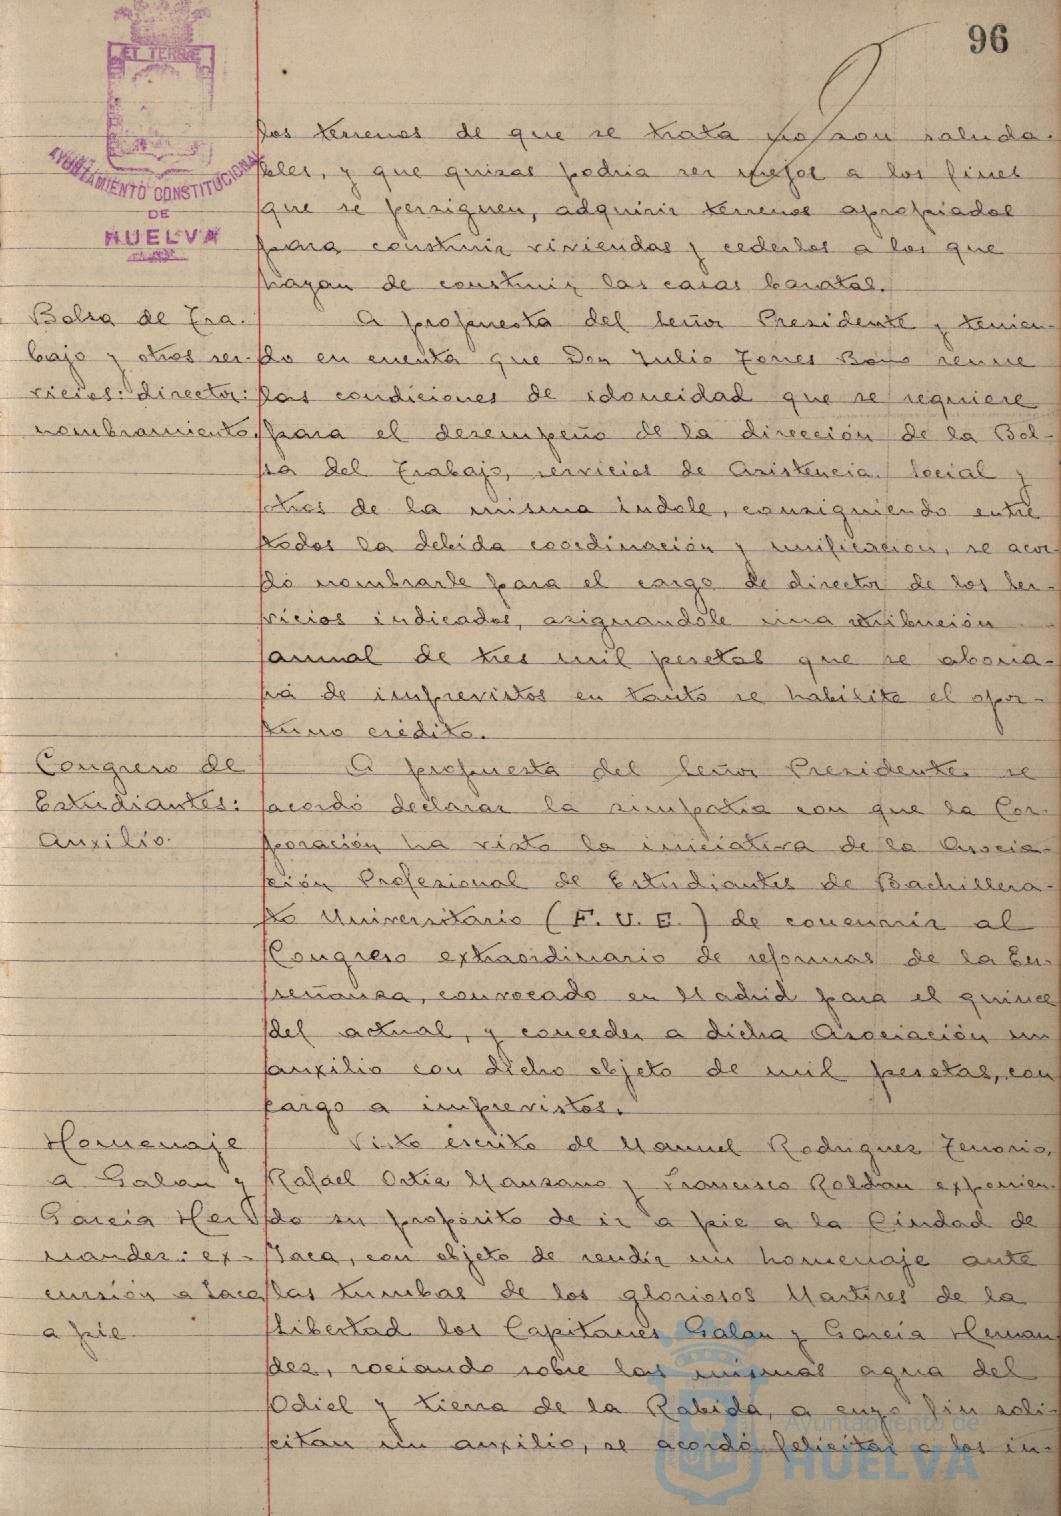 96
ET TERRÆ
AYUNTAMIENTO CONSTITUCIONAL
DE
HUELVA
los terrenos de que se trata no son saluda-
bles, y que quizas podria ser mejor a los fines
que se persiguen, adquirir terrenos apropiados
para construir viviendas y cederlos a los que
hayan de construir las casas baratas.
Bolsa de Tra-
bajo y otros ser-
vicios: director:
nombramiento.
A propuesta del Señor Presidente y tenien-
do en cuenta que Don Julio Torres Bono reune
las condiciones de idoneidad que se requiere
para el desempeño de la dirección de la Bol-
sa del Trabajo, servicios de Asistencia Social y
otros de la misma indole, consiguiendo entre
todos la debida coordinación y unificacion, se acor-
dó nombrarle para el cargo de director de los ser-
vicios indicados, asignandole una retribución
anual de tres mil pesetas que se abona-
rá de imprevistos en tanto se habilite el opor-
tuno crédito.
Congreso de
Estudiantes:
Auxilio.
A propuesta del Señor Presidente se
acordó declarar la simpatia con que la Cor-
poración ha visto la iniciativa de la Asocia-
ción Profesional de Estudiantes de Bachillera-
to Universitario (F. U. E.) de concurrir al
Congreso extraordinario de reformas de la En-
señanza, convocado en Madrid para el quince
del actual, y conceder a dicha Asociación un
auxilio con dicho objeto de mil pesetas, con
cargo a imprevistos.
Homenaje
a Galan y
Garcia Her-
nandez: ex-
cursión a Jaca
a pie.
Visto escrito de Manuel Rodriguez Tenorio,
Rafael Ortiz Manzano y Francisco Roldan exponien-
do su propósito de ir a pie a la Ciudad de
Jaca, con objeto de rendir un homenaje ante
las tumbas de los gloriosos Martires de la
Libertad los Capitanes Galan y García Hernan
dez, rociando sobre las mismas agua del
Odiel y tierra de la Rabida, a cuyo fin soli-
citan un auxilio, se acordó felicitar a los in-
Ayuntamiento de
HUELVA